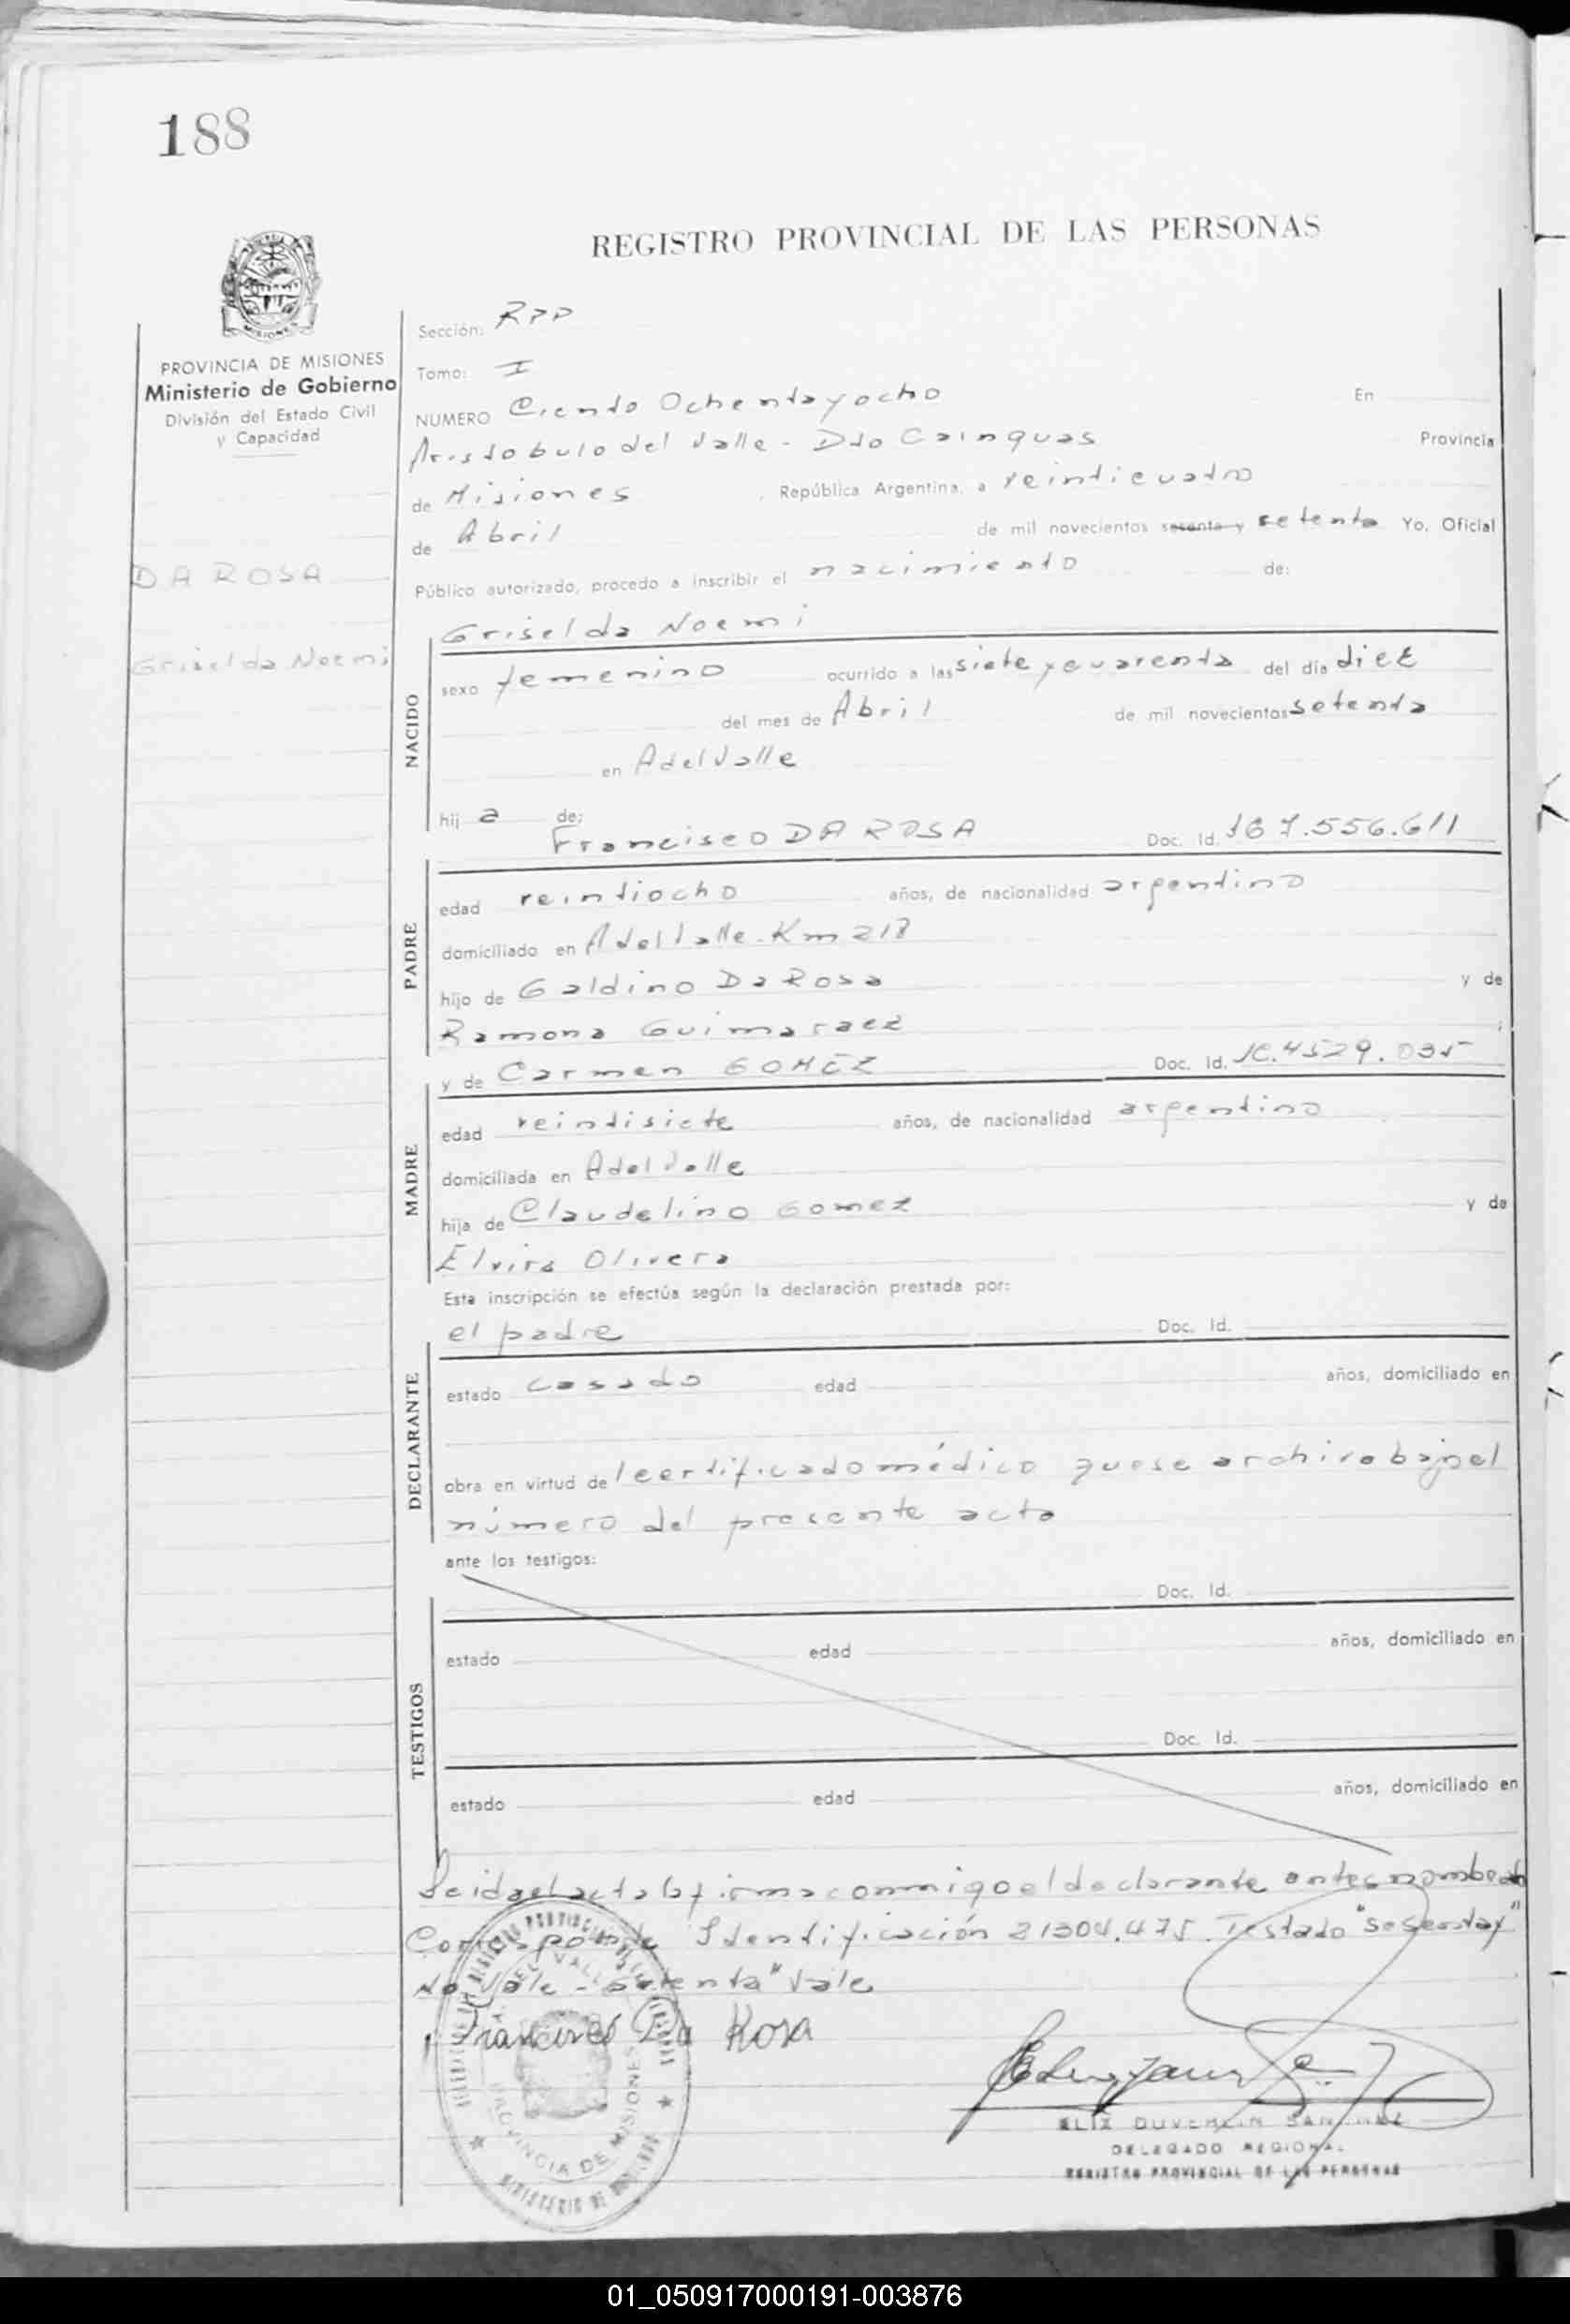 188
REGISTRO PROVINCIAL DE LAS PERSONAS
MISIONES
PROVINCIA DE MISIONES
Ministerio de Gobierno
División del Estado Civil
y Capacidad
DA ROSA
Griselda Noemi
Sección: RPP
Tomo: I
NUMERO Ciento Ochentayocho En
Aristobulo del Valle - Dto Cainguas Provincia
de Misiones , República Argentina, a veinticuatro
de Abril de mil novecientos sesenta y setenta Yo, Oficial
Público autorizado, procedo a inscribir el nacimiento de:
Griselda Noemi
NACIDO
sexo femenino ocurrido a las siete y cuarenta del día diez
del mes de Abril de mil novecientos setenta
en A del Valle
hij a de:
Francisco DA ROSA Doc. Id. 7.556.611
PADRE
edad veintiocho años, de nacionalidad argentino
domiciliado en A del Valle - Km 218
hijo de Galdino Da Rosa y de
Ramona Guimaraez ;
y de Carmen GOMEZ Doc. Id. 4529.035
MADRE
edad veintisiete años, de nacionalidad argentina
domiciliada en A del Valle
hija de Claudelino Gomez y de
Elvira Olivera
Esta inscripción se efectúa según la declaración prestada por:
el padre Doc. Id.
DECLARANTE
estado casado edad años, domiciliado en
obra en virtud de l certificado médico que se archiva bajo el
número del presente acta
ante los testigos:
Doc. Id.
TESTIGOS
estado edad años, domiciliado en
Doc. Id.
estado edad años, domiciliado en
Leida el acta la firma conmigo el declarante antes nombrado
Corresponde Identificación 21304.475. Testado "sesenta y"
No Vale - setenta" Vale
Francisco Da Rosa
PROVINCIA DE MISIONES
SANCHEZ
DELEGADO REGIONAL
REGISTRO PROVINCIAL DE LAS PERSONAS
01_050917000191-003876